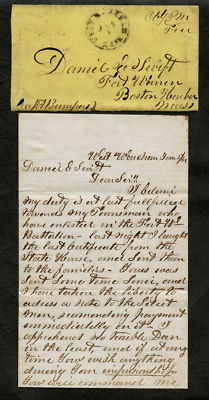 Daniel E. Swift
Fort Warren
Boston Harbor
Mass
West Wareham
Daniel E. Swift
Dear Sir
I believe
my duty is at last fullfilled
towards my Townsmen who
have enlisted in the Fort
Battalion - Last night I bought
the last Certificate from the
State House, and sent them
to the families - Yours was
sent some time since, and I
shall have to take the liberty to
adress a note to the Select
Men, demanding payment
immediately on it - I
apprehend no trouble
in the least, and if at any
time You wish anything
during your
You will command me